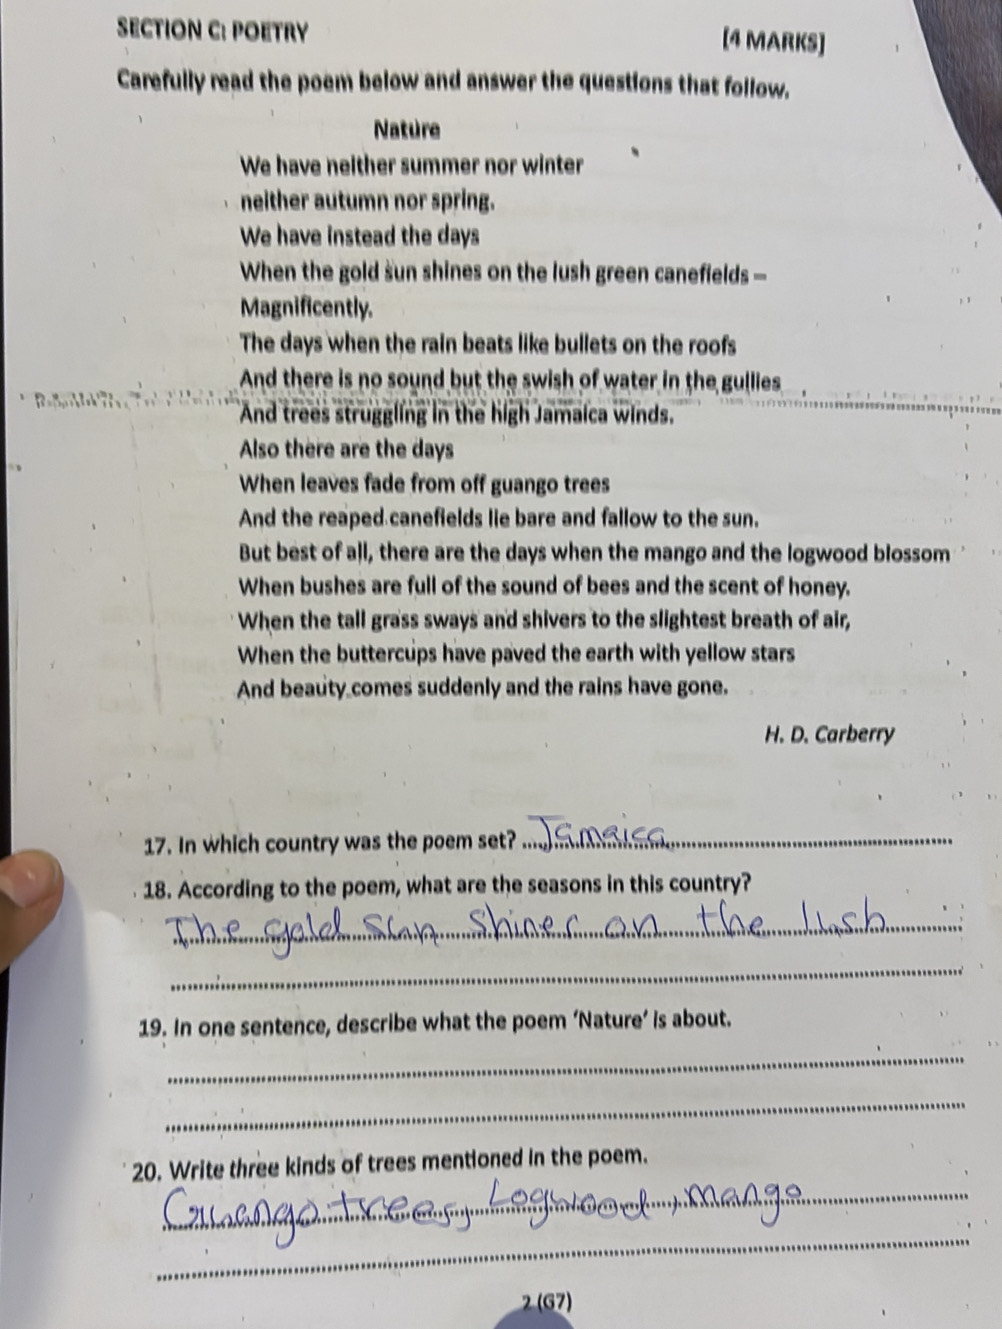 SECTION C: POETRY [4 MARKS]
Carefully read the poem below and answer the questions that follow.
Nature
We have neither summer nor winter
neither autumn nor spring.
We have instead the days
When the gold sun shines on the lush green canefields –
Magnificently.
The days when the rain beats like bullets on the roofs
And there is no sound but the swish of water in the gullies
And trees struggling in the high Jamaica winds.
Also there are the days
When leaves fade from off guango trees
And the reaped canefields lie bare and fallow to the sun.
But best of all, there are the days when the mango and the logwood blossom
When bushes are full of the sound of bees and the scent of honey.
When the tall grass sways and shivers to the slightest breath of air,
When the buttercups have paved the earth with yellow stars
And beauty comes suddenly and the rains have gone.
H. D. Carberry
17. In which country was the poem set? Jamaica
18. According to the poem, what are the seasons in this country?
The gold sun shines on the lush
19. In one sentence, describe what the poem 'Nature' is about.
20. Write three kinds of trees mentioned in the poem.
Guango trees, Logwood, mango
2 (G7)